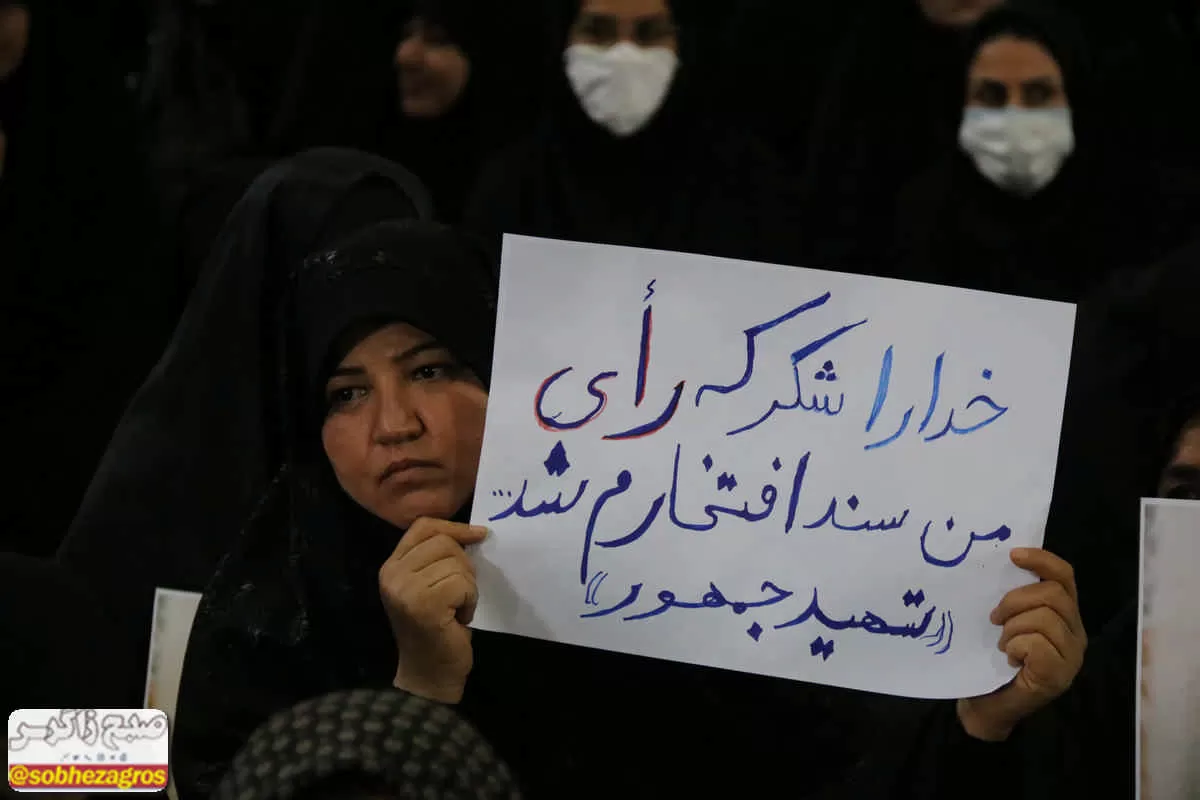 خدارا شکر که رأی
من سند افتخارم شد...
((شهید جمهور))
صبح زاگرس
@sobhezagros